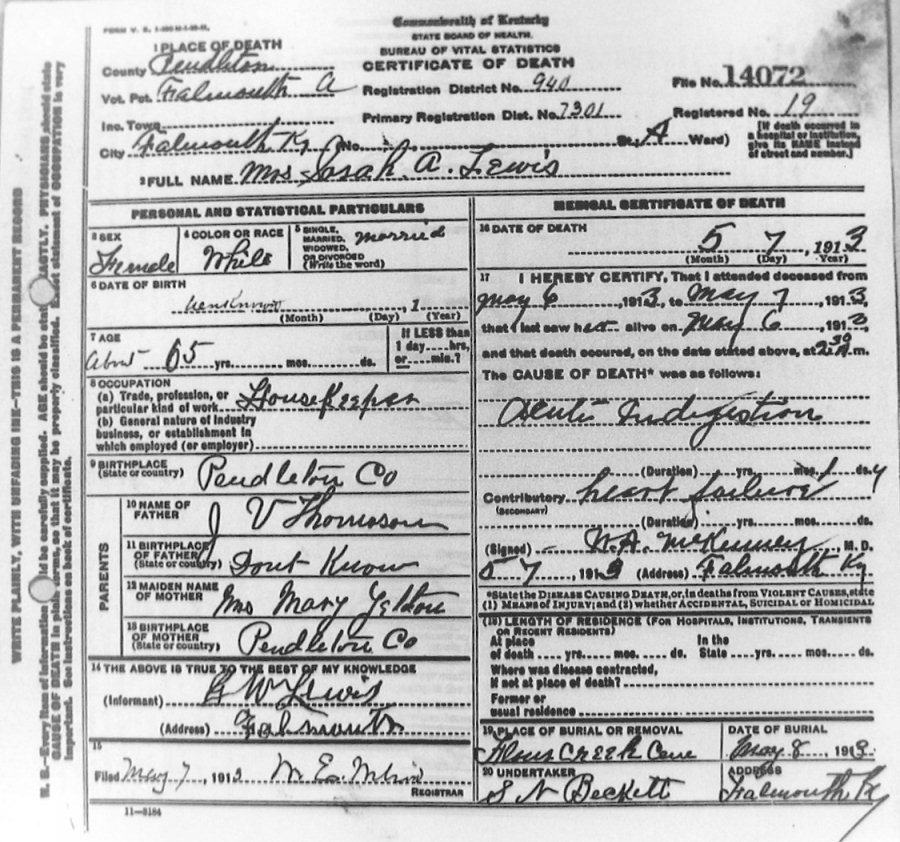 Commonwealth of Kentucky
STATE BOARD OF HEALTH.
BUREAU OF VITAL STATISTICS
CERTIFICATE OF DEATH
1 PLACE OF DEATH
County Pendleton
Vot. Pct. Falmouth A
Registration District No. 940
File No. 14072
Inc. Town
Primary Registration Dist. No. 7301
Registered No. 19
City Falmouth Ky (No. St., A Ward)
[If death occurred in a hospital or institution, give its NAME instead of street and number.]
2 FULL NAME Mrs Sarah A. Lewis
PERSONAL AND STATISTICAL PARTICULARS
3 SEX
Female
4 COLOR OR RACE
White
5 SINGLE, MARRIED, WIDOWED, OR DIVORCED (Write the word)
Married
6 DATE OF BIRTH
, 1
(Month) (Day) (Year)
7 AGE
About 65 yrs. mos. ds.
If LESS than 1 day hrs, or min.?
8 OCCUPATION
(a) Trade, profession, or
particular kind of work HouseKeeper
(b) General nature of industry
business, or establishment in
which employed (or employer)
9 BIRTHPLACE
(State or country) Pendleton Co
PARENTS
10 NAME OF FATHER J V Thomason
11 BIRTHPLACE OF FATHER (State or country) Dont Know
12 MAIDEN NAME OF MOTHER Mrs Mary Yelton
13 BIRTHPLACE OF MOTHER (State or country) Pendleton Co
14 THE ABOVE IS TRUE TO THE BEST OF MY KNOWLEDGE
(Informant) W Lewis
(Address) Falmouth
15
Filed May 7, 1913
REGISTRAR
11-3184
MEDICAL CERTIFICATE OF DEATH
16 DATE OF DEATH
5 7, 1913
(Month) (Day) (Year)
17 I HEREBY CERTIFY, That I attended deceased from
May 6, 1913, to May 7, 1913,
that I last saw her alive on May 6, 1913,
and that death occured, on the date stated above, at 2 30 A.m.
The CAUSE OF DEATH* was as follows:
Acute Indigestion
(Duration) yrs. mos. 1 ds.
Contributory heart failure
(SECONDARY)
(Duration) yrs. mos. ds.
(Signed) W.A. McKenney, M. D.
5 7, 1913 (Address) Falmouth Ky
*State the DISEASE CAUSING DEATH, or, in deaths from VIOLENT CAUSES, state
(1) MEANS OF INJURY; and (2) whether ACCIDENTAL, SUICIDAL OR HOMICIDAL
(18) LENGTH OF RESIDENCE (FOR HOSPITALS, INSTITUTIONS, TRANSIENTS
OR RECENT RESIDENTS)
At place of death yrs. mos. ds. In the State yrs. mos. ds.
Where was disease contracted,
If not at place of death?
Former or
usual residence
19 PLACE OF BURIAL OR REMOVAL
Creek Cem
DATE OF BURIAL
May 8, 1913
20 UNDERTAKER
S N Beckett
ADDRESS
Falmouth Ky
WRITE PLAINLY, WITH UNFADING INK—THIS IS A PERMANENT RECORD
N. B.—Every item of information should be carefully supplied. AGE should be stated EXACTLY. PHYSICIANS should state
CAUSE OF DEATH in plain terms, so that it may be properly classified. Exact statement of OCCUPATION is very
important. See instructions on back of certificate.